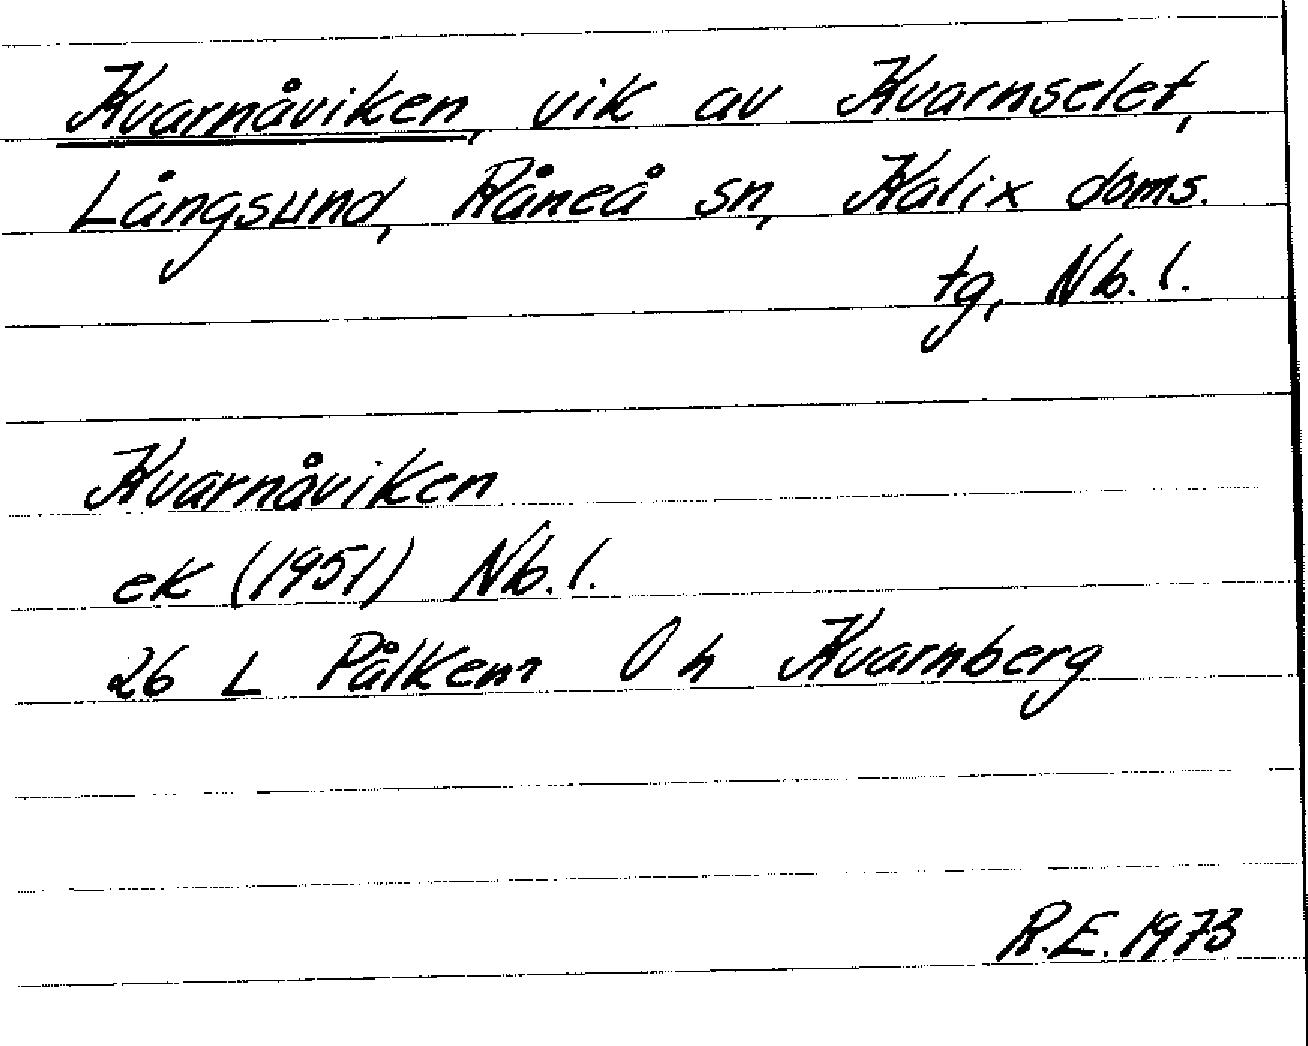 Kvarnåviken, vik av Kvarnselet,
Långsund, Råneå sn, Kalix doms.
tg, Nb. l.
Kvarnåviken
ek (1951) Nb. l.
26 L Pålkem 0 h Kvarnberg
R.E. 1973